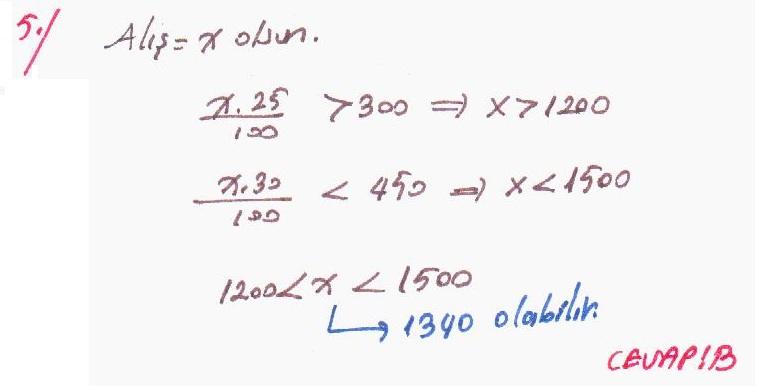 5./ Alış = x olsun.
x.25/100 > 300 ⇒ x > 1200
x.30/100 < 450 ⇒ x < 1500
1200 < x < 1500
↳ 1340 olabilir.
CEVAP: B